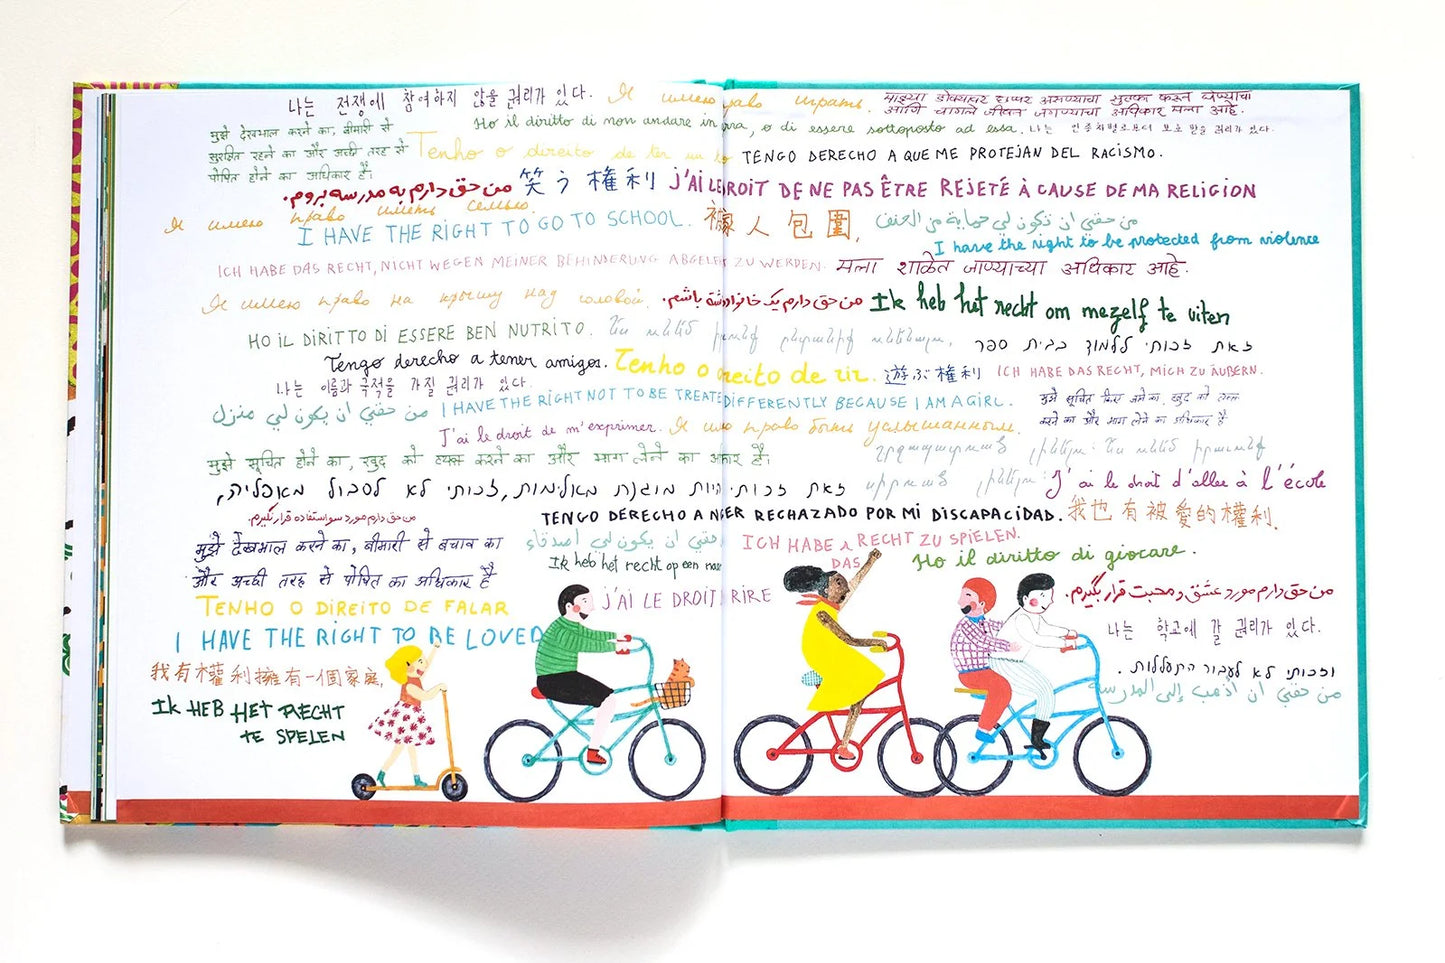 나는 전쟁에 참여하지 않을 권리가 있다. Я имею право играть. माझ्या डोक्यावर छप्पर असण्याचा
आणि चांगले जीवन जगण्याचा अधिकार मला आहे.
मुझे देखभाल करने का, बीमारी से Ho il diritto di non andare in guerra, o di essere sottoposto ad essa. 나는 인종차별으로부터 보호 받을 권리가 있다.
सुरक्षित रहने का और अच्छी तरह से Tenho o direito de ter um TENGO DERECHO A QUE ME PROTEJAN DEL RACISMO.
पोषित होने का अधिकार है।
من حق دارم به مدرسه بروم. 笑う権利 J'AI LE DROIT DE NE PAS ÊTRE REJETÉ À CAUSE DE MA RELIGION
Я имею право иметь семью.
I HAVE THE RIGHT TO GO TO SCHOOL. 人包圍, من حقي ان تكون لي حماية من العنف
I have the right to be protected from violence
ICH HABE DAS RECHT, NICHT WEGEN MEINER BEHINDERUNG ABGELEHNT ZU WERDEN. मला शाळेत जाण्याच्या अधिकार आहे.
Я имею право на крышу над головой. من حق دارم یک خانواده داشته باشم. Ik heb het recht om mezelf te uiten
HO IL DIRITTO DI ESSERE BEN NUTRITO. זאת זכותי ללמוד בבית ספר
Tengo derecho a tener amigos. Tenho o direito de rir. 遊ぶ権利 ICH HABE DAS RECHT, MICH ZU ÄUßERN.
나는 이름과 국적을 가질 권리가 있다.
من حقي ان يكون لي منزل I HAVE THE RIGHT NOT TO BE TREATED DIFFERENTLY BECAUSE I AM A GIRL. मुझे सूचित किए जाने का, खुद को व्यक्त
करने का और भाग लेने का अधिकार है
J'ai le droit de m'exprimer. Я имею право быть услышанным.
मुझे सूचित होने का, खुद को व्यक्त करने का और भाग लेने का अधिकार है।
זאת זכותי להיות מוגנת מאלימות, זכותי לא לסבול מאפליה, J'ai le droit d'aller à l'école
من حق دارم مورد سو استفاده قرار نگیرم. TENGO DERECHO A NO SER RECHAZADO POR MI DISCAPACIDAD. 我也有被愛的權利.
मुझे देखभाल करने का, बीमारी से बचाव का من حقي ان يكون لي اصدقاء ICH HABE DAS RECHT ZU SPIELEN.
और अच्छी तरह से पोषित का अधिकार है Ik heb het recht op een naam Ho il diritto di giocare.
TENHO O DIREITO DE FALAR J'AI LE DROIT DE RIRE من حق دارم مورد عشق و محبت قرار بگیرم.
I HAVE THE RIGHT TO BE LOVED 나는 학교에 갈 권리가 있다.
我有權利擁有一個家庭, וזכותי לא לעבור התעללות.
IK HEB HET RECHT من حقي ان اذهب إلى المدرسة
TE SPELEN